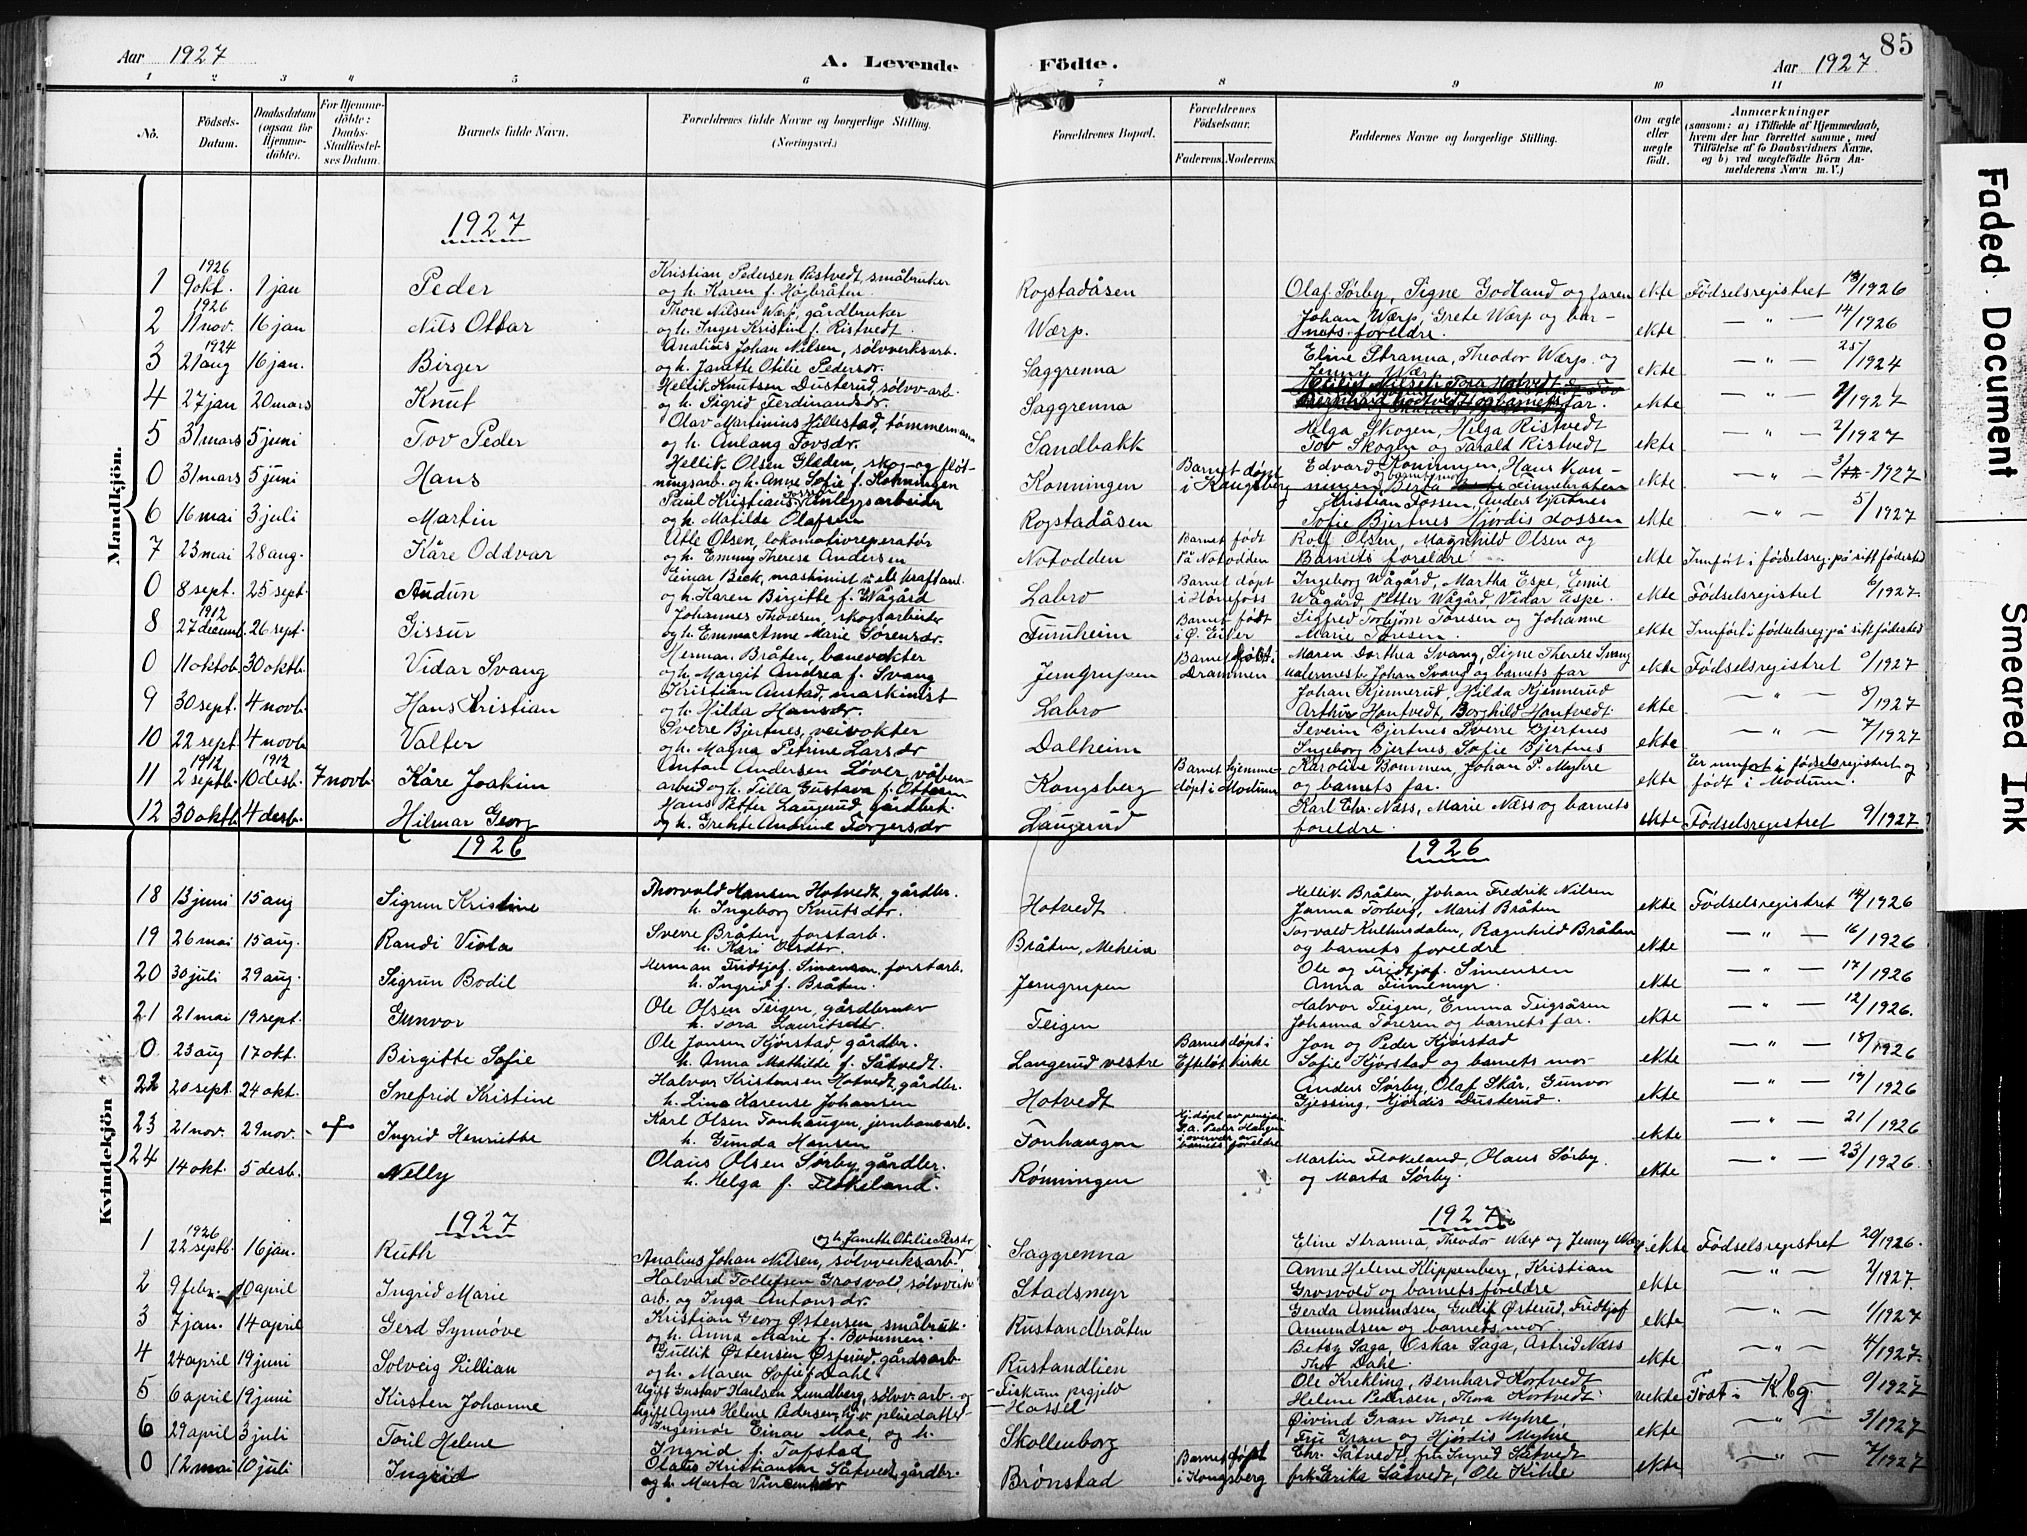 Aar 1927
A. Levende Födte.
Aar 1927
85
1 2 3 4 5 6 7 8 9 10 11
No.
Födsels-Datum.
Daabsdatum (ogsaa for Hjemme-döbte).
For Hjemme-döbte: Daabs-Stadfæstel-ses Datum.
Barnets fulde Navn.
Forældrenes fulde Navne og borgerlige Stilling.
(Næringsvei.)
Forældrenes Bopæl.
Forældrenes Födselsaar.
Faderens. Moderens.
Faddernes Navne og borgerlige Stilling.
Om ægte eller uægte födt.
Anmærkninger
(saasom: a) i Tilfælde af Hjemmedaab, hvem der har forrettet samme, med Tilföielse af to Daabsvidners Navne, og b) ved uægtefödte Börn An-melderens Navn m. V.)
Mandkjön.
1927
1 1926 9 okt. 1 jan Peder Kristian Pedersen Ristvedt, småbruker og h. Karen f. Høgbråten. Rogstadåsen Olaf Sørby, Signe Godland og faren ekte Födselsregistret /1926
2 1926 11 nov. 16 jan Nils Ottar Thore Nilsen Wærp, gårdbruker og h. Inger Kristine f. Ristvedt. Wærp. Johan Wærp, Grete Wærp og bar-nets foreldre. ekte — " — 14/1926
3 1924 21 aug 16 jan. Birger Analius Johan Nilsen, sølvverksarb. og h. Janette Otilie Pedersdr. Saggrenna Eline Stranna, Theodor Wærp og Jenny Wærp ekte — " — 25/1924
4 27 jan 20 mars Knut Hellik Knutsen Dusterud, sølvv-arb. og h. Sigrid Ferdinandsdr. Saggrenna far. ekte — " — /1927
5 31 mars 5 juni Tov Peder Olav Martinius Hillestad, tømmermann og h. Anlaug Tovsdr. Sandbakk Helga Skogen, Helga Ristvedt Tov Skogen og Tarald Ristvedt ekte — " — 2/1927
0 31 mars 5 juni Hans Hellik Olsen Gladen, skog- og fløt-ningsarb. og h. Anne Sofie f. Konningen Konningen Barnet døpt i Kongsberg Edvard Konningen, Hans Kon-ningen og barnets mor Berta Finnebråten ekte — " — 3/ 1927
6 16 mai 3 juli Martin Paul Kristians. Fossen Anleggsarbeider og h. Matilde Olafsen Rogstadåsen Kristian Fossen, Anders Bjertnes Sofie Bjertnes Hjørdis Fossen ekte — " — 5/1927
7 23 mai 28 aug. Kåre Oddvar Atle Olsen, lokomotivreperatør og h. Emmy Therese Andersen Notodden Barnet født På Notodden Rolf Olsen, Magnhild Olsen og Barnets foreldre ekte Innført i fødselsreg. på sitt fødested
0 8 sept. 25 sept. Audun Einar Beck, maskinist v. elektraftanl. og h. Karen Birgitte f. Wågård Labro Barnet døpt i Hønefoss Ingeborg Wågård, Martha Espe, Emil Wågård, Petter Wågård, Vidar Espe. ekte Födselsregistret 6/1927
8 1912 27 decemb. 26 sept. Gissur Johannes Thoresen, skogsarbeider og h. Emma Anne Marie Sørensdr. Furuheim Barnet født i Ø. Eiker Sigfred Torbjørn Toresen og Johanne Marie Toresen. ekte Innført i fødselsreg. på sitt fødested
0 11 oktob. 30 oktb. Vidar Svang Herman Bråten, banevokter og h. Margit Andrea f. Svang Jerngrupen Barnet født i Drammen Maren Dorthea Svang, Signe Therese Svang Johan Svang og barnets far ekte Födselsregistret 0/1927
9 30 sept. 4 novb. Hans Kristian Kristian Austad, maskinist og h. Hilda Hansdr. Labro Johan Kjennerud, Hilda Kjennerud Arthur Hontvedt, Borghild Hontvedt. ekte — " — 8/1927
10 22 sept. 4 novb Valter Sverre Bjertnes, veivokter og h. Magna Petrine Larsdr Dalheim Severin Bjertnes Sverre Bjertnes Ingeborg Bjertnes Sofie Bjertnes ekte — " — 7/1927
11 1912 2 septb. 1912 10 desb. 7 novb. Kåre Joakim Anton Andersen Løver, våben-arbeid og h. Tilla Gustava f. Ottersen Kongsberg Barnet hjemme-døpt i Modum Karoline Bommen, Johan P. Myhre og barnets far. ekte Er innført i fødselsregistret og født i Modum.
12 30 oktb 4 desb. Hilmar Georg Hans Petter Laugerud, gårdbrk. og h. Grethe Andrine Torgersdr Laugerud Karl Chr. Næss, Marie Næss og barnets foreldre. ekte Födselsregistret 9/1927.
Kvindekjön
1926
1926
18 13 juni 15 aug Sigrun Kristine Thorvald Hansen Hotvedt, gårdbr. h. Ingeborg Knutsdtr. Hotvedt Hellik Bråten, Johan Fredrik Nilsen Janna Torberg, Marit Bråten ekte Födselsregistret 14/1926
19 26 mai 15 aug. Randi Viola Sverre Bråten, forstarb. h. Kari Olsdtr Bråten, Meheia Torvald Kulhusdalen, Ragnhild Bråten og barnets foreldre ekte — " — 16/1926
20 30 juli 29 aug. Sigrun Bodil Herman Fridtjof Simensen, forstarb. h. Ingrid f. Bråten. Jerngrupen Ole og Fridtjof Simensen Anna Finnemyr. ekte — " — 17/1926
21 21 mai 19 sept. Gunvor Ole Olsen Teigen, gårdbruker h. Tora Lauritsdtr. Teigen Halvor Teigen, Emma Teigsåsen Johanna Toresen og barnets far. ekte — " — 12/1926.
0 23 aug 17 okt. Birgitte Sofie Ole Jonsen Kjørstad, gårdbr. h. Anna Mathilde f. Såtvedt. Langerud vestre Barnet døpt i Efteløt kirke Jon og Peder Kjørstad Sofie Kjørstad og barnets mor ekte — " — 18/1926
22 20 sept. 24 okt. Snefrid Kristine Halvor Kristensen Hotvedt, gårdbr. h. Lina Karense Johansen Hotvedt Anders Sørby, Olaf Skår, Gunvor Gjessing, Hjørdis Dusterud. ekte — " — 19/1926
23 21 nov. 29 nov. Ingrid Henriette Karl Olsen Tonhaugen, jernbanearb. h. Gunda Hansen Tonhaugen Hj. døpt av pensjon. Peder Haugen i overvær av barnets foreldre ekte — " — 21/1926
24 14 okt. 5 desb. Nelly Olaus Olsen Sørby, gårdbr. h. Helga f. Flokeland. Rønningen Martin Flokeland, Olaus Sørby. og Marta Sørby. ekte — " — 23/1926.
1927
1927
1 1926 22 septb. 16 jan. Ruth Analius Johan Nilsen, sølvverksarb. og h. Janette Otilie Persdr Saggrenna Eline Stranna, Theodor Wærp og Jenny Wærp ekte Födselsregistret 20/1926.
2 9 febr. 10 april Ingrid Marie Halvard Tollefsen Grosvold, sølvverks arb. og Inga Antonsdr. Stadsmyr Anne Helene Klippenberg, Kristian Grosvold og barnets foreldre ekte — " — 2/1927.
3 7 jan. 14 april Gerd Synnøve Kristian Georg Østensen, småbruk. og h. Anna Marie f. Bommen. Rustandbråten Gerda Amundsen, Gullik Østerud, Fridtjof Amundsen og barnets mor ekte — " — 1/1927
4 24 april 19 juni Solveig Lillian Gullik Østensen Østerud, gårdsarb. og h. Maren Sofie f. Dahl Rustandlien Betsy Saga, Oskar Saga, Astrid Næss Thor Dahl. ekte — " — 4/1927.
5 6 april 19 juni Kirsten Johanne Ugift Gustav Karlsen Lundberg, sølvv. arb. og Ugift Agnes Helene Pedersen, pleiedatter Fiskum prgjeld — Hassel — Ole Krekling, Bernhard Kortvedt Helene Pedersen, Thora Kortvedt uekte Født i Kbg. 0/1927
6 29 april 3 juli Toril Helene Ingemor Einar Moe, og h. Ingrid f. Tofstad Skollenborg Øivind Gran Thore Myhre, Fru Gran og Hjørdis Myhre ekte — " — 3/1927
0 12 mai 10 juli Ingrid Olaus Kristiansen Såtvedt, gårdbr. og h. Marta Vincentsdr Brønstad Barnet døpt i Kongsberg Chr. Såtvedt, frk. Ingrid Såtvedt frk. Erika Såtvedt, Ole Kihle ekte — " — 7/1927
Faded Document
Smeared Ink